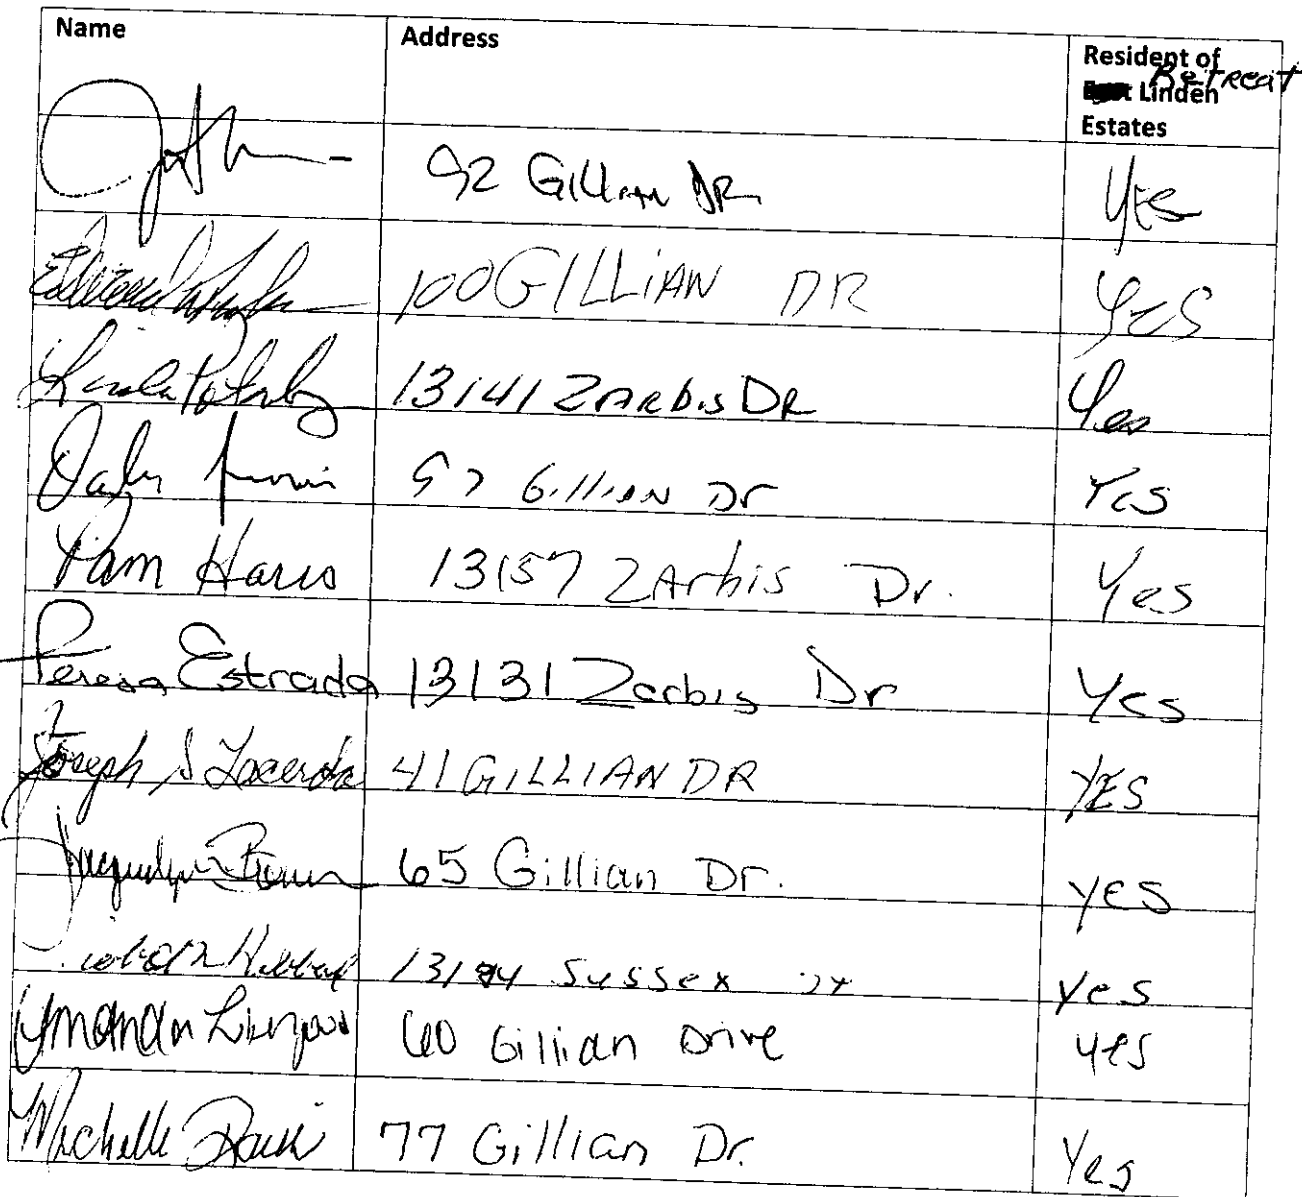 Name Address Resident of
Retreat
Linden
Estates
92 Gillian DR Yes
100 GILLIAN DR YES
Linda 13141 ZARbis DR Yes
97 Gillian Dr Yes
Pam Harris 13157 ZArbis Dr. Yes
Teresa Estrada 13131 Zarbis Dr Yes
Joseph S Lacerda 41 GILLIAN DR YES
Jacquelyn Brown 65 Gillian Dr. yes
Sussex yes
Amanda 60 Gillian Drive yes
Michelle Davis 77 Gillian Dr. Yes